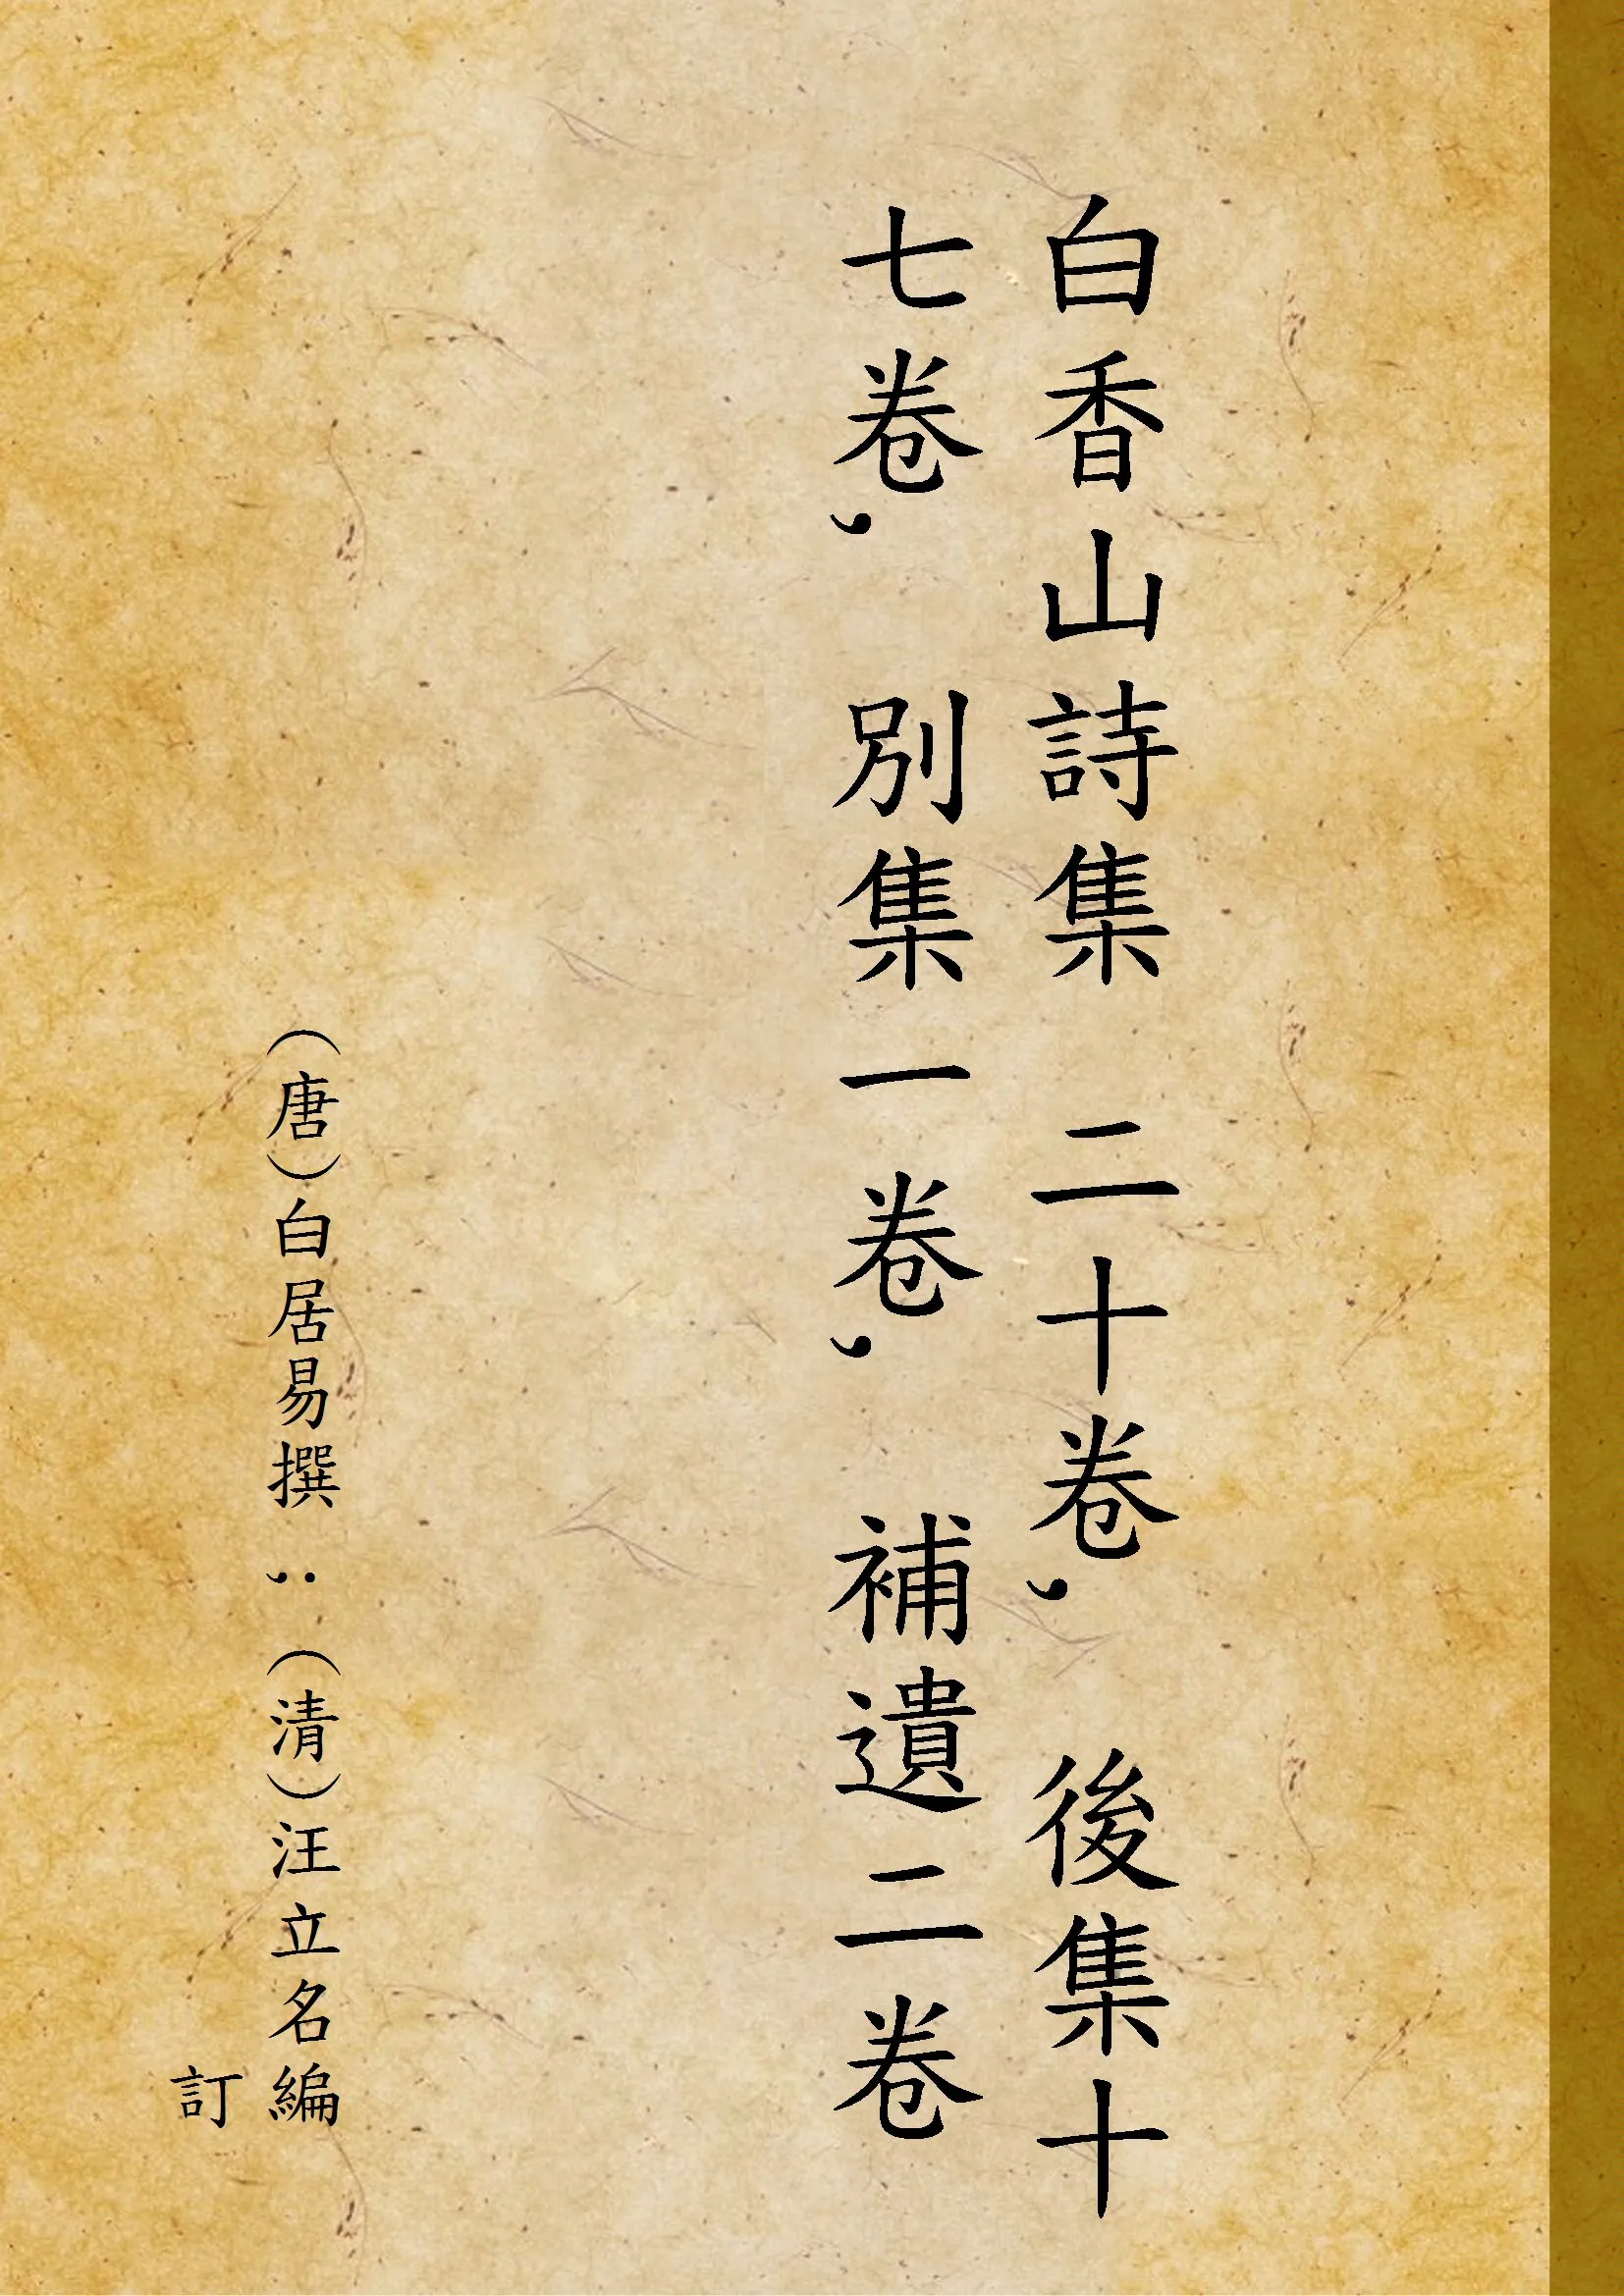 白香山詩集 二十卷, 後集十
七卷, 別集一卷, 補遺二卷
(唐)白居易撰 ; (清)汪立名編
訂